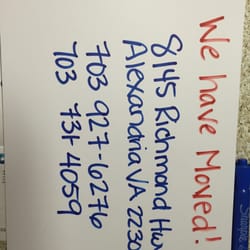 We have Moved!
8145 Richmond Hwy
Alexandria VA 2230
703 927-6276
703 731-4059